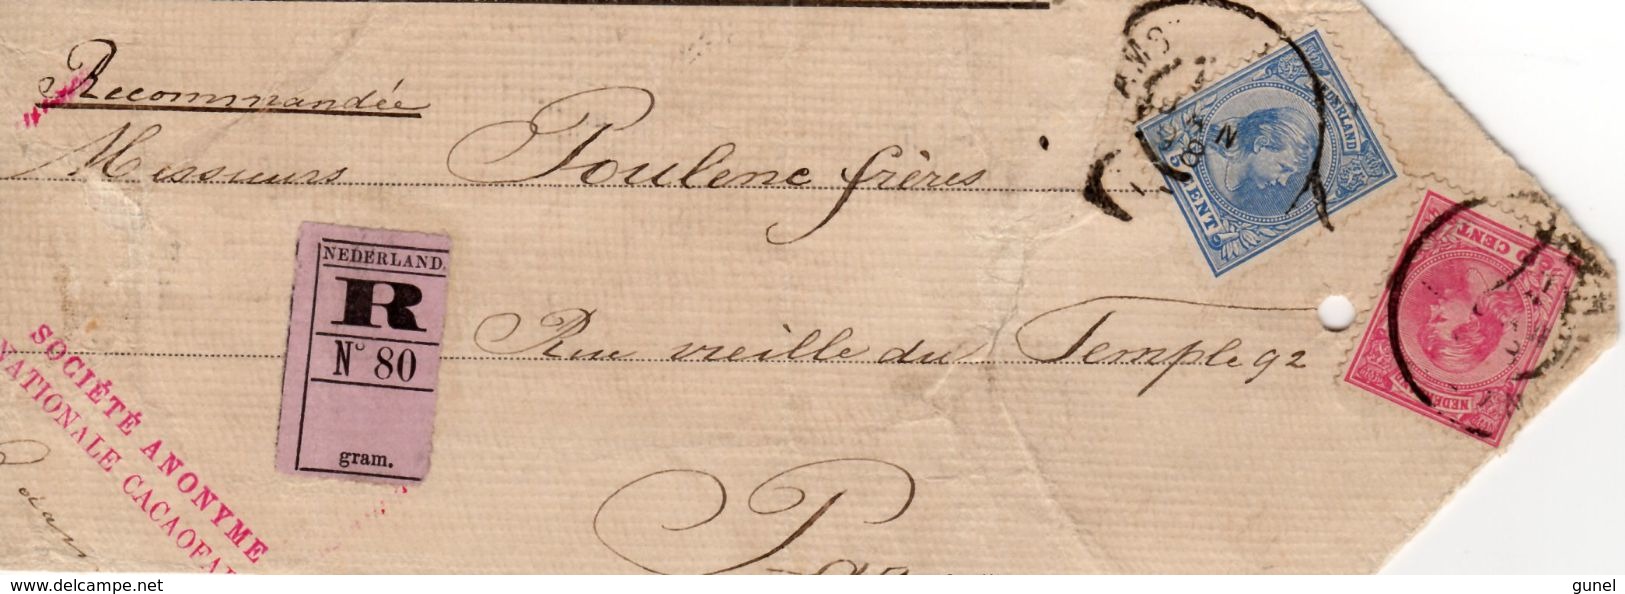 Recommandée
Messieurs Poulenc frères
Rue vieille du Temple 92
NEDERLAND.
R
N° 80
gram.
SOCIÉTÉ ANONYME
NATIONALE CACAOFA
NEDERLAND
5 CENT
CENT
delcampe.net
gunel